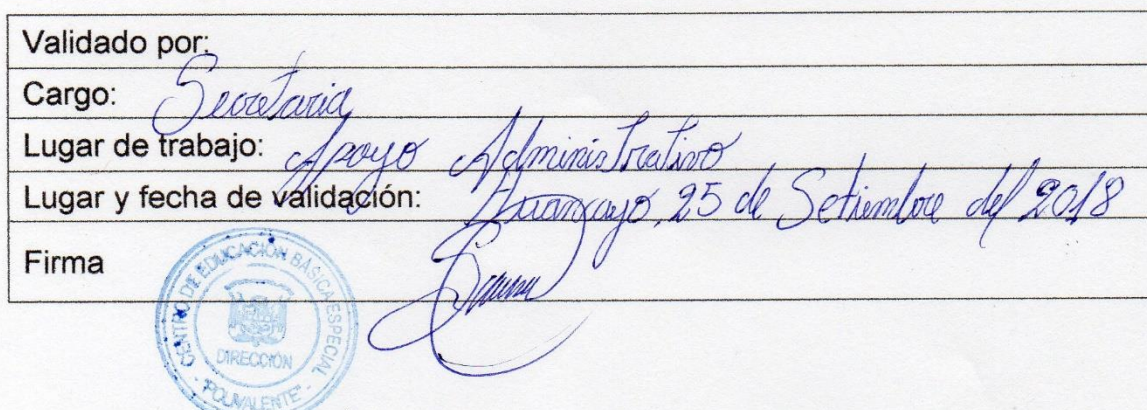 Validado por:
Cargo: Secretaria
Lugar de trabajo: Apoyo Administrativo
Lugar y fecha de validación: Huancayo, 25 de Setiembre del 2018
Firma
CENTRO DE EDUCACIÓN BÁSICA ESPECIAL
DIRECCIÓN
- "POLIVALENTE" -